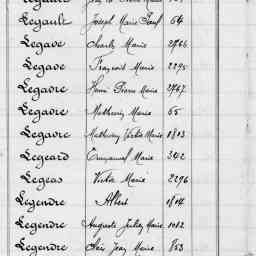 Legault Joseph Marie Paul 64
Legave Charles Marie 2466
Legave François Marie 2295
Legavre Henri Pierre Marie 2467
Legavre Mathurin Marie 65
Legavre Mathurin Victor Marie 1803
Legeard Emmanuel Marie 342
Legeas Victor Marie 2296
Legendre Albert 1804
Legendre Auguste Julien Marie 1082
Legendre Jean Marie 853